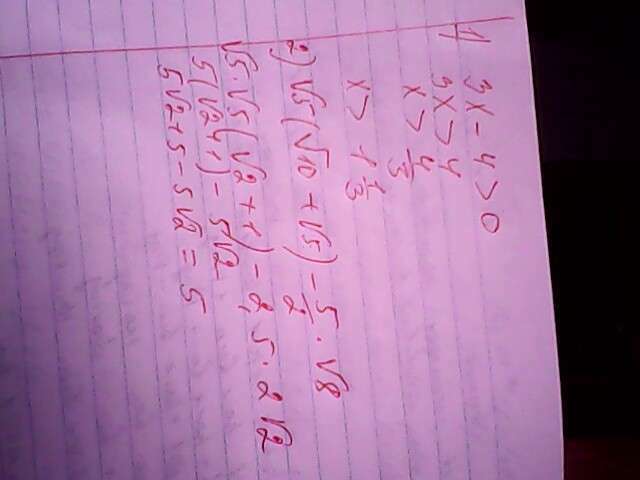 1) 3x - 4 > 0
3x > 4
x > 4/3
x > 1 1/3
2) √5(√10 + √5) - 5/2 · √8
√5·√5(√2 + 1) - 2,5 · 2√2
5(√2+1) - 5√2
5√2+5-5√2 = 5